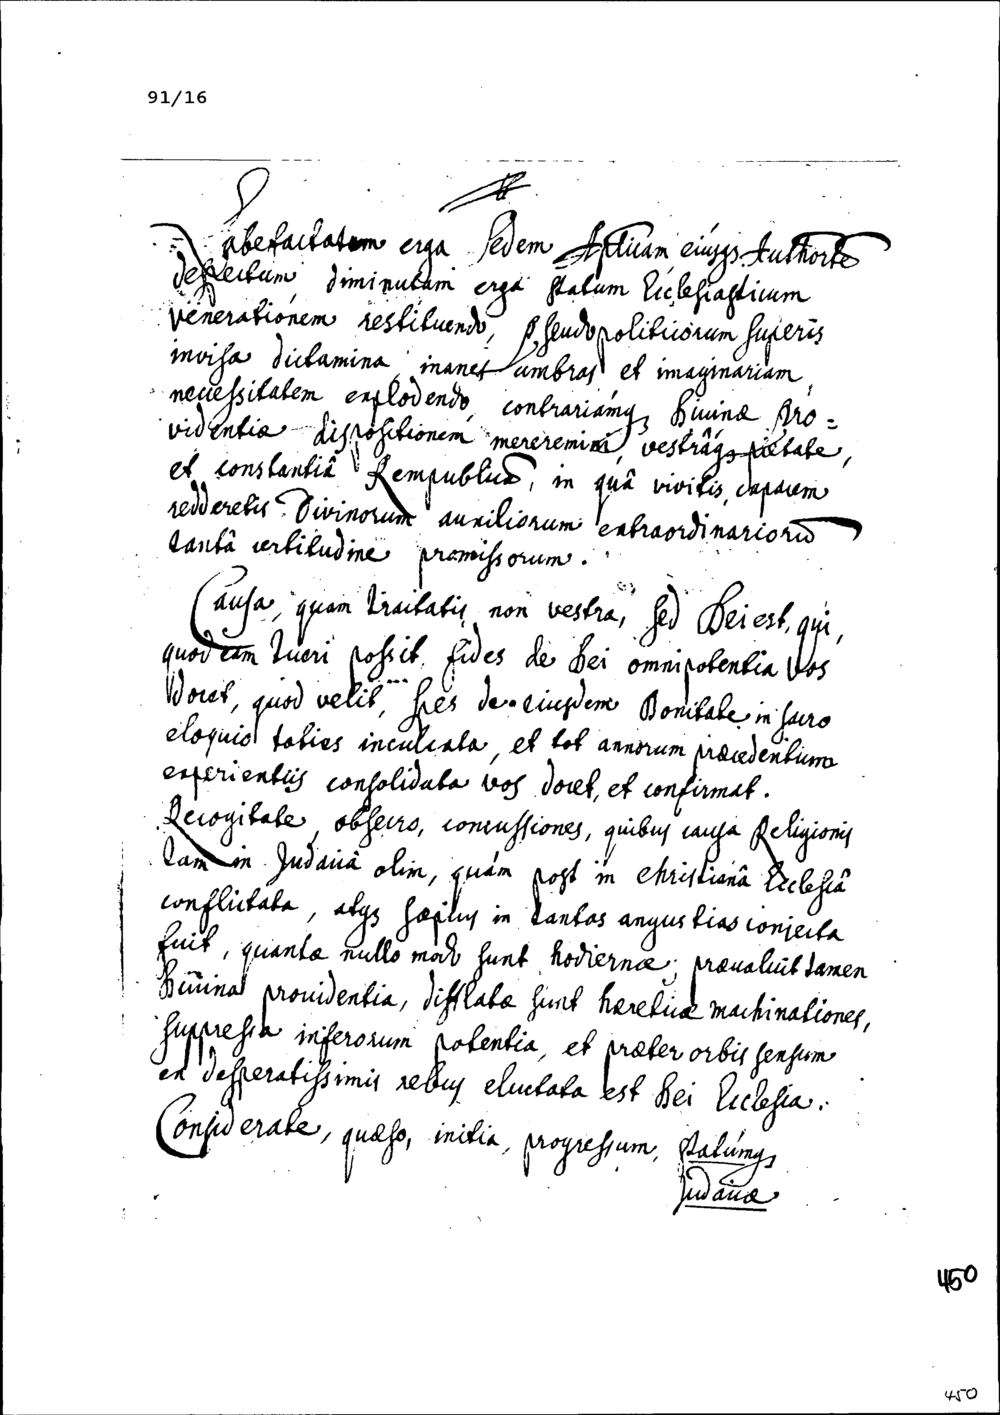 91/16
Labefactatam erga Sedem Apstlicam eiúsqs Authorte
despectum diminutam erga statum Ecclesiasticum
venerationem restituendo, Pseudopoliticorum superis
invisa dictamina inanes umbras et imaginariam
necessitatem explodendo, contrariamqs Divinæ Pro=
videntiæ dispositionem mereremini, vestrâqs pietate,
et constantiâ Rempublicã, in quâ vivitis, capacem
redderetis Divinorum auxiliorum extraordinariorũ
tantâ certitudine promissorum.
Causa, quam tractatis, non vestra, sed Dei est, qui,
quod eam tueri possit, fides de Dei omnipotentia vos
docet, quod velit, spes de eiusdem Bonitate in sacro
eloquio toties inculcata, et tot annorum præcedentium
experientiis consolidata vos docet, et confirmat.
Recogitate, obsecro, concussiones, quibus causa Religionis
tam in Judaicâ olim, quám post in Christianâ Ecclesiâ
conflictata, atqs sæpius in tantas angustias conjecta
fuit, quantæ nullo modo sunt hodiernæ; prævaluit tamen
Divina providentia, difflatæ sunt hæreticæ machinationes,
suppressa inferorum potentia, et præter orbis sensum
ex desperatissimis rebus eluctata est Dei Ecclesia.
Considerate, quæso, initia, progressum, statúmqs
Judaicæ
450
450